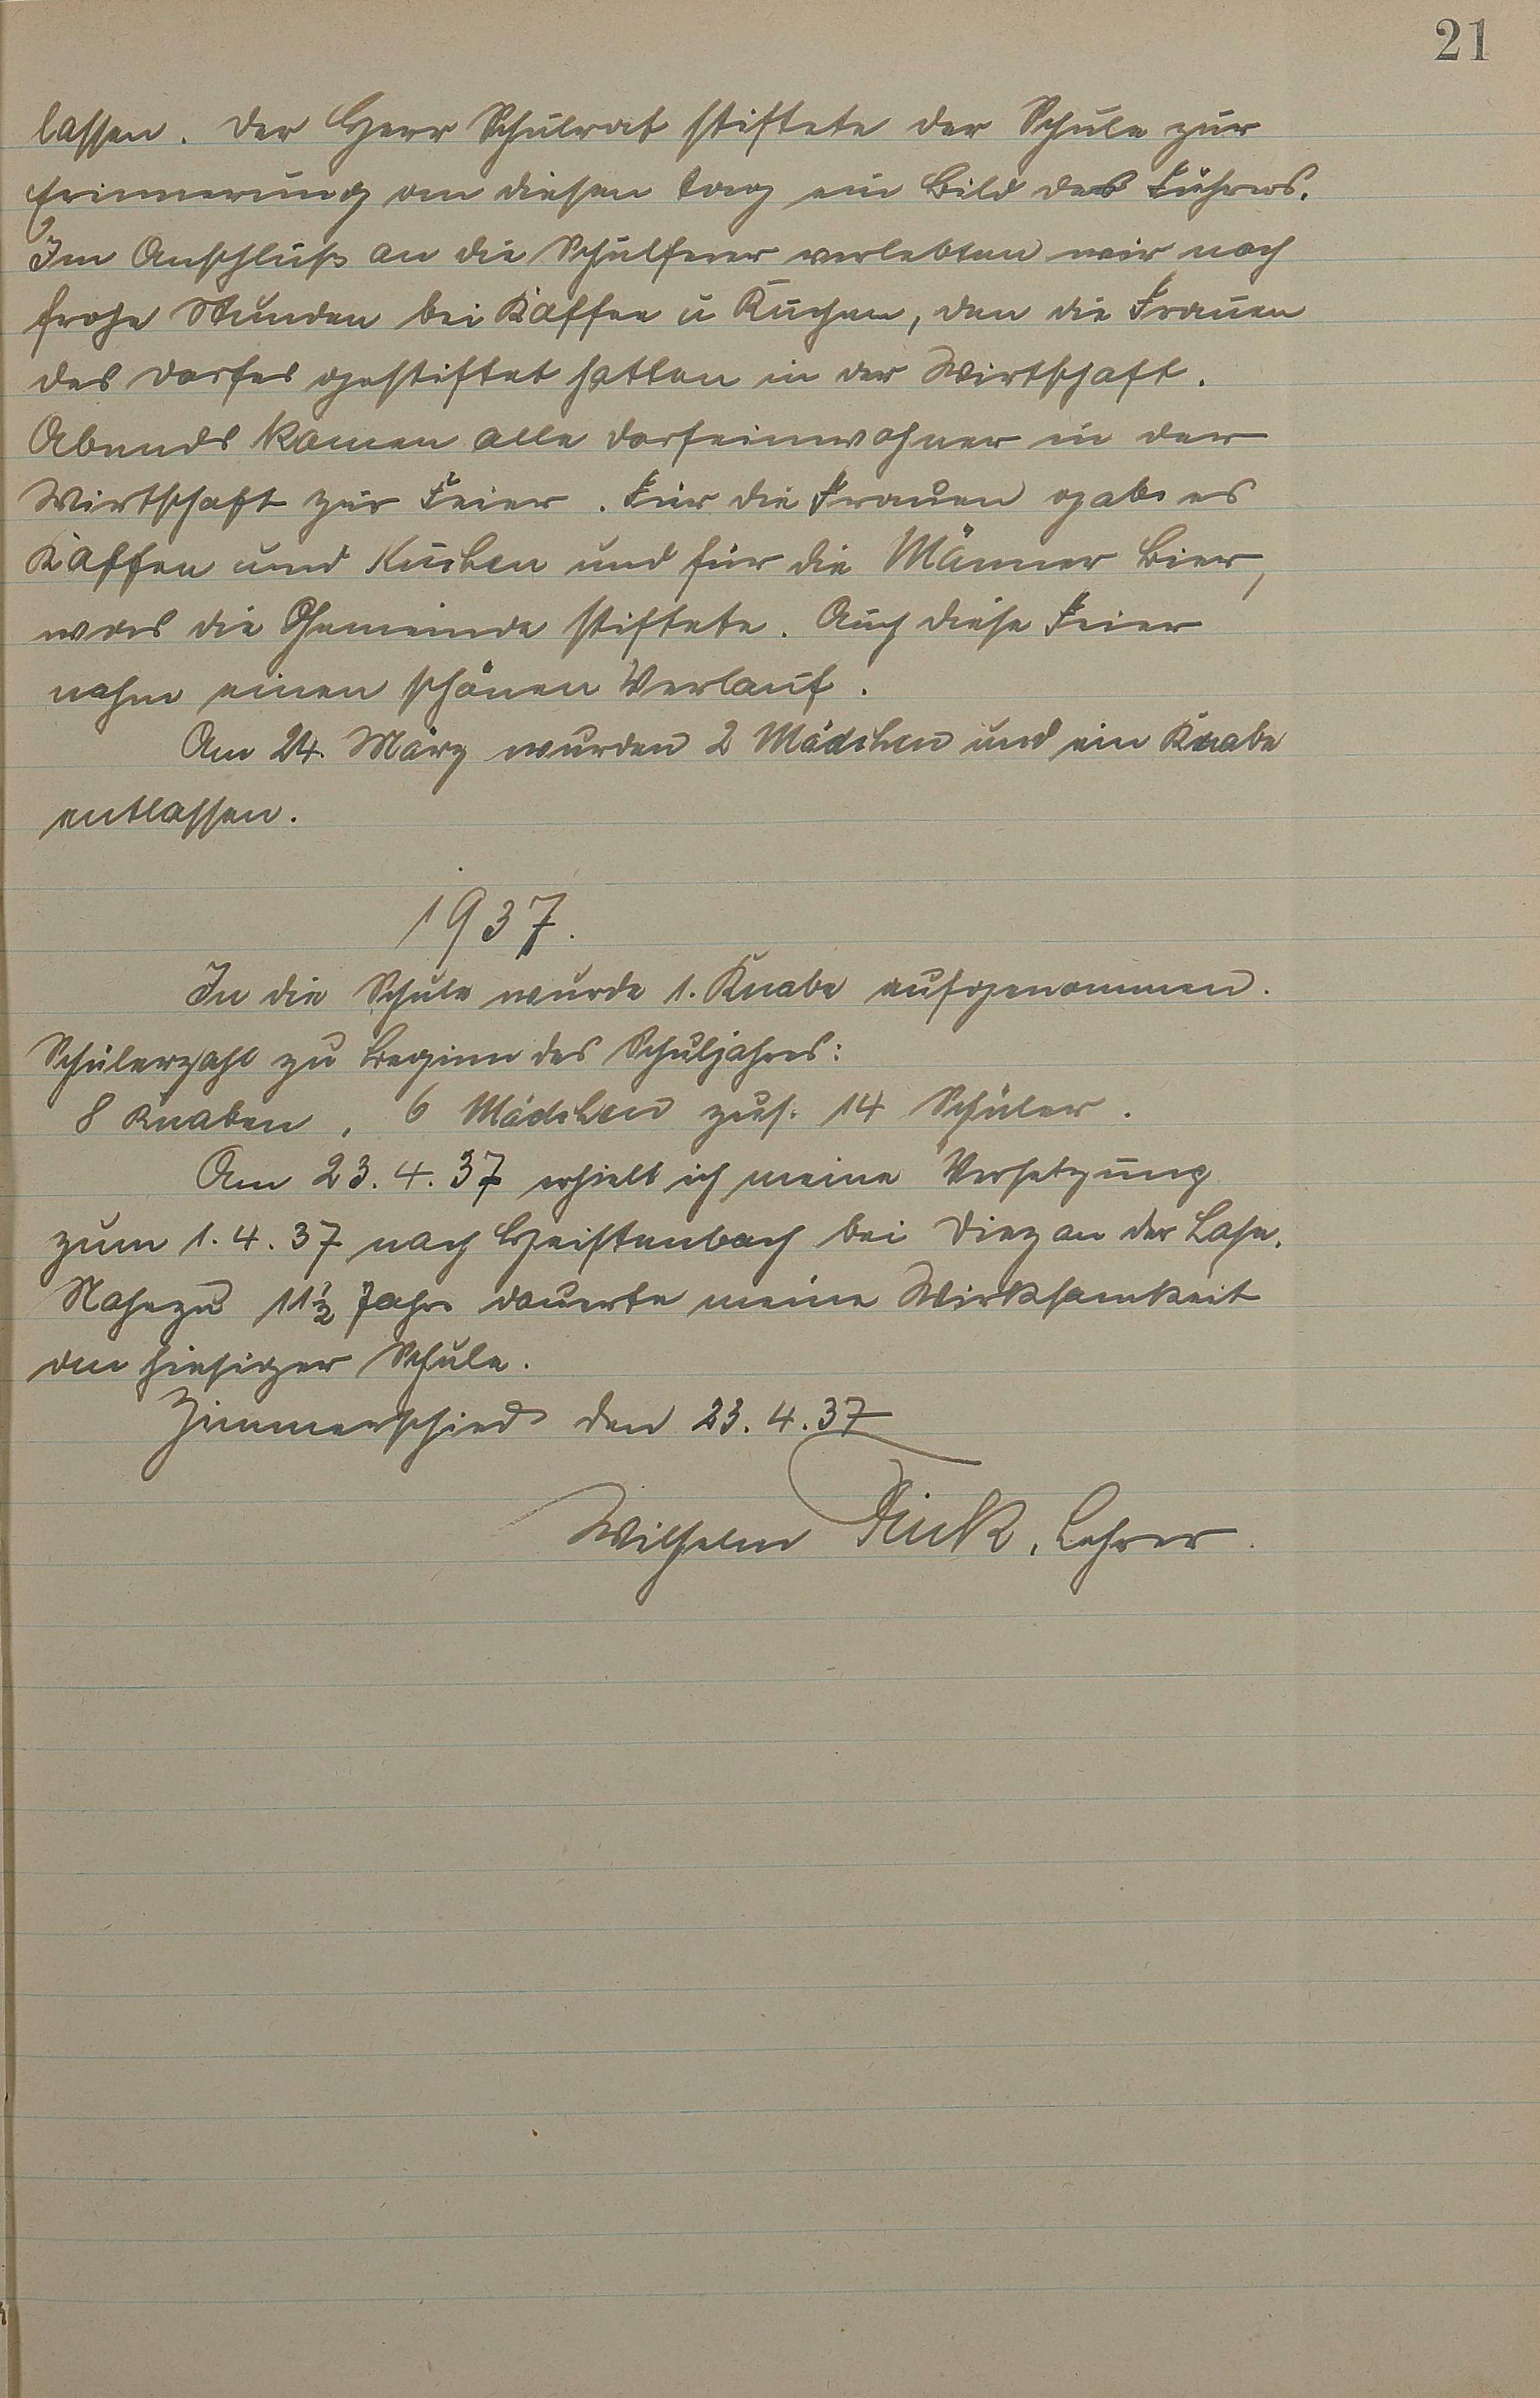 21
lassen. Der Herr Schulrat stiftete der Schule zur
Erinnerung an diesen Tag ein Bild des Führers.
Im Anschluß an die Schulfeier verlebten wir noch
frohe Stunden bei Kaffee u Kuchen, den die Frauen
des Dorfes gestiftet hatten in der Wirtschaft.
Abends kamen alle Dorfeinwohner in der
Wirtschaft zur Feier. Für die Frauen gab es
Kaffee und Kuchen und für die Männer Bier,
was die Gemeinde stiftete. Auch diese Feier
nahm einen schönen Verlauf.
Am 24. März wurden 2 Mädchen und ein Knabe
entlassen.
1937.
In die Schule wurde 1. Knabe aufgenommen.
Schülerzahl zu Beginn des Schuljahres:
8 Knaben, 6 Mädchen zus. 14 Schüler.
Am 23.4.37 erhielt ich meine Versetzung
zum 1.4.37 nach Heistenbach bei Diez an der Lahn.
Nahezu 11½ Jahre dauerte meine Wirksamkeit
an hiesiger Schule.
Zimmerschied den 23.4.37
Wilhelm Fink, Lehrer.